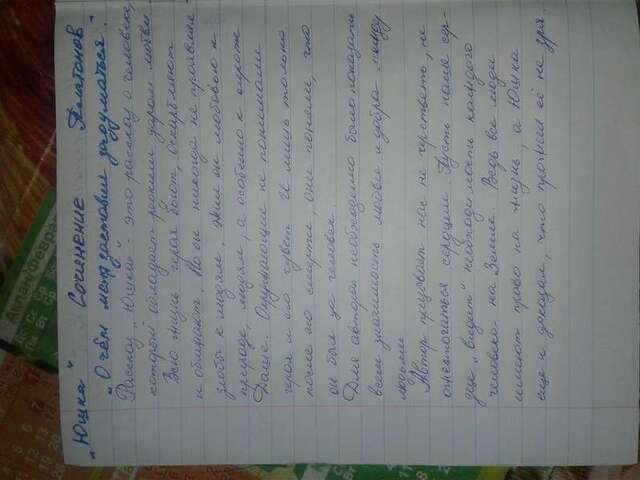 „Юшка" Сочинение Платонов
„О чём меня заставил задуматься".
Рассказ „Юшка" - это рассказ о человеке,
который обладает редким даром любви.
Всю жизнь героя бьют, оскорбляют
и обижают. Но он никогда не проявлял
злобы к людям. Жил он любовью к
природе, людям, а особенно к сироте
Даше. Окружающие не понимали
героя и его чувств. И лишь только
после его смерти, они поняли, что
он был за человек.
Для автора необходимо было показать
всем значимость любви и добра между
людьми.
Автор призывает нас не черстветь, не
ожесточаться сердцем. Пусть наше сер-
дце „видит" необходимость каждого
человека на Земле. Ведь все люди
имеют право на жизнь, а Юшка
ещё и доказал, что прожил её не зря.
Февра